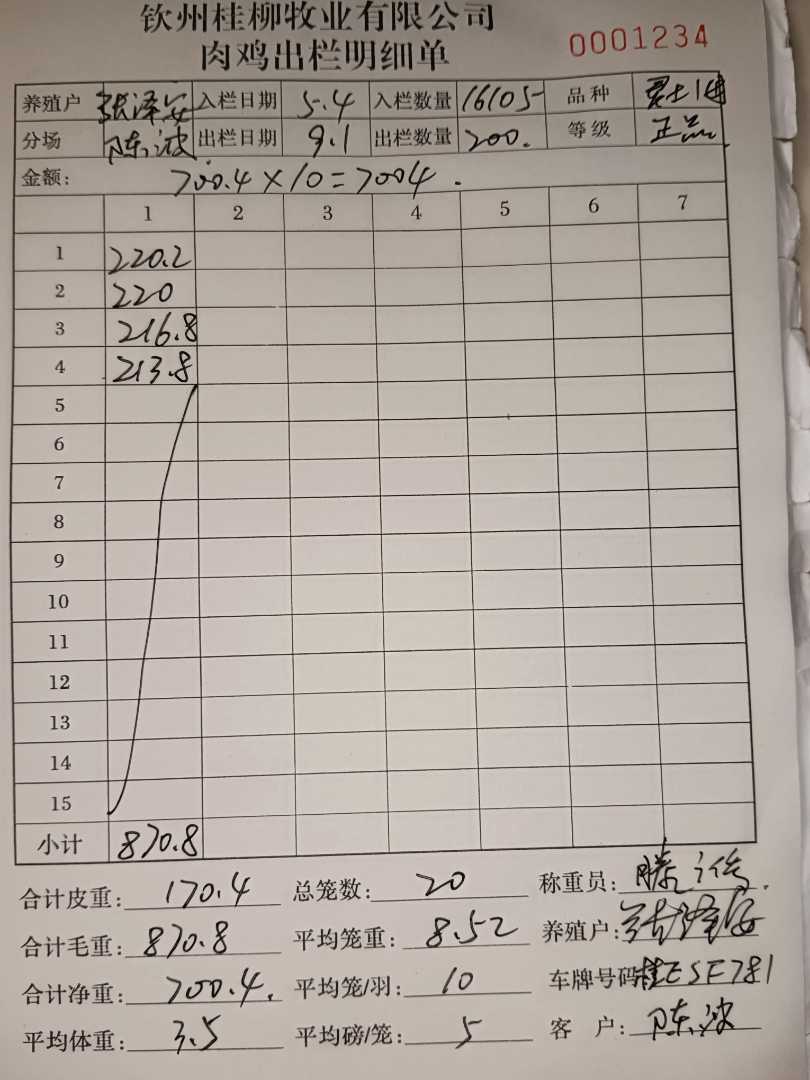 钦州桂柳牧业有限公司
肉鸡出栏明细单 0001234
养殖户 张泽安 入栏日期 5.4 入栏数量 16105 品种
分场 陈波 出栏日期 9.1 出栏数量 200. 等级 正品
金额: 700.4×10=7004.
1 2 3 4 5 6 7
1 220.2
2 220
3 216.8
4 213.8
5
6
7
8
9
10
11
12
13
14
15
小计 870.8
合计皮重: 170.4 总笼数: 20 称重员:
合计毛重: 870.8 平均笼重: 8.52 养殖户: 张泽安
合计净重: 700.4. 平均笼/羽: 10 车牌号码 桂ESF781
平均体重: 3.5 平均磅/笼: 5 客 户: 陈波